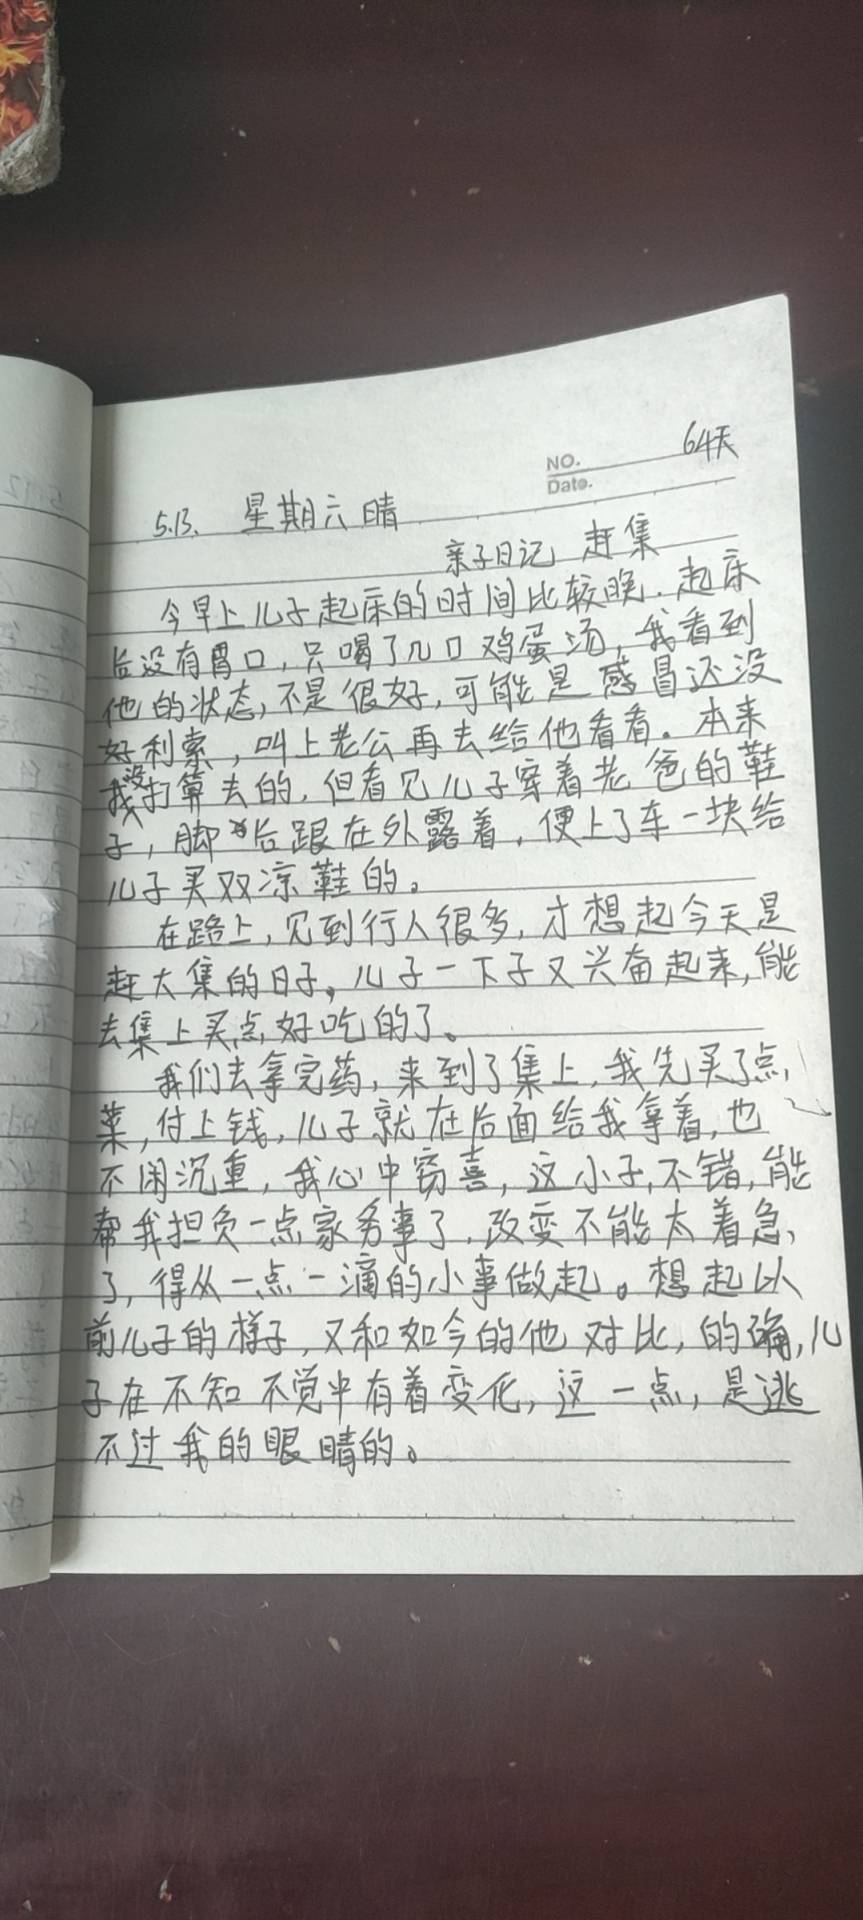 64天
NO.
Date.
5.13. 星期六 晴
亲子日记 赶集
今早上儿子起床的时间比较晚.起床
后没有胃口,只喝了几口鸡蛋汤,我看到
他的状态,不是很好,可能是感冒还没
好利索,叫上老公再去给他看看。本来
我没打算去的,但看见儿子穿着老爸的鞋
子,脚后跟在外露着,便上了车一块给
儿子买双凉鞋的。
在路上,见到行人很多,才想起今天是
赶大集的日子,儿子一下子又兴奋起来,能
去集上买点好吃的了。
我们去拿完药,来到了集上,我先买了点
菜,付上钱,儿子就在后面给我拿着,也
不闲沉重,我心中窃喜,这小子,不错,能
帮我担负一点家务事了,改变不能太着急
了,得从一点一滴的小事做起。想起以
前儿子的样子,又和如今的他对比,的确,儿
子在不知不觉中有着变化,这一点,是逃
不过我的眼睛的。